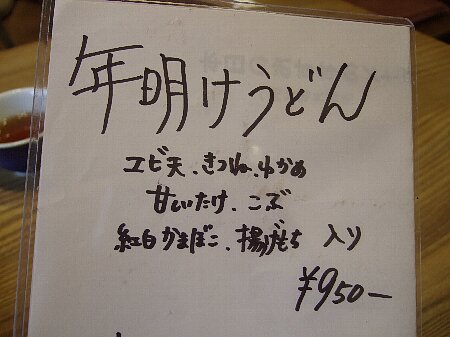 年明けうどん
エビ天、きつね、わかめ
甘しいたけ、こぶ
紅白かまぼこ、揚げもち 入り
¥950−